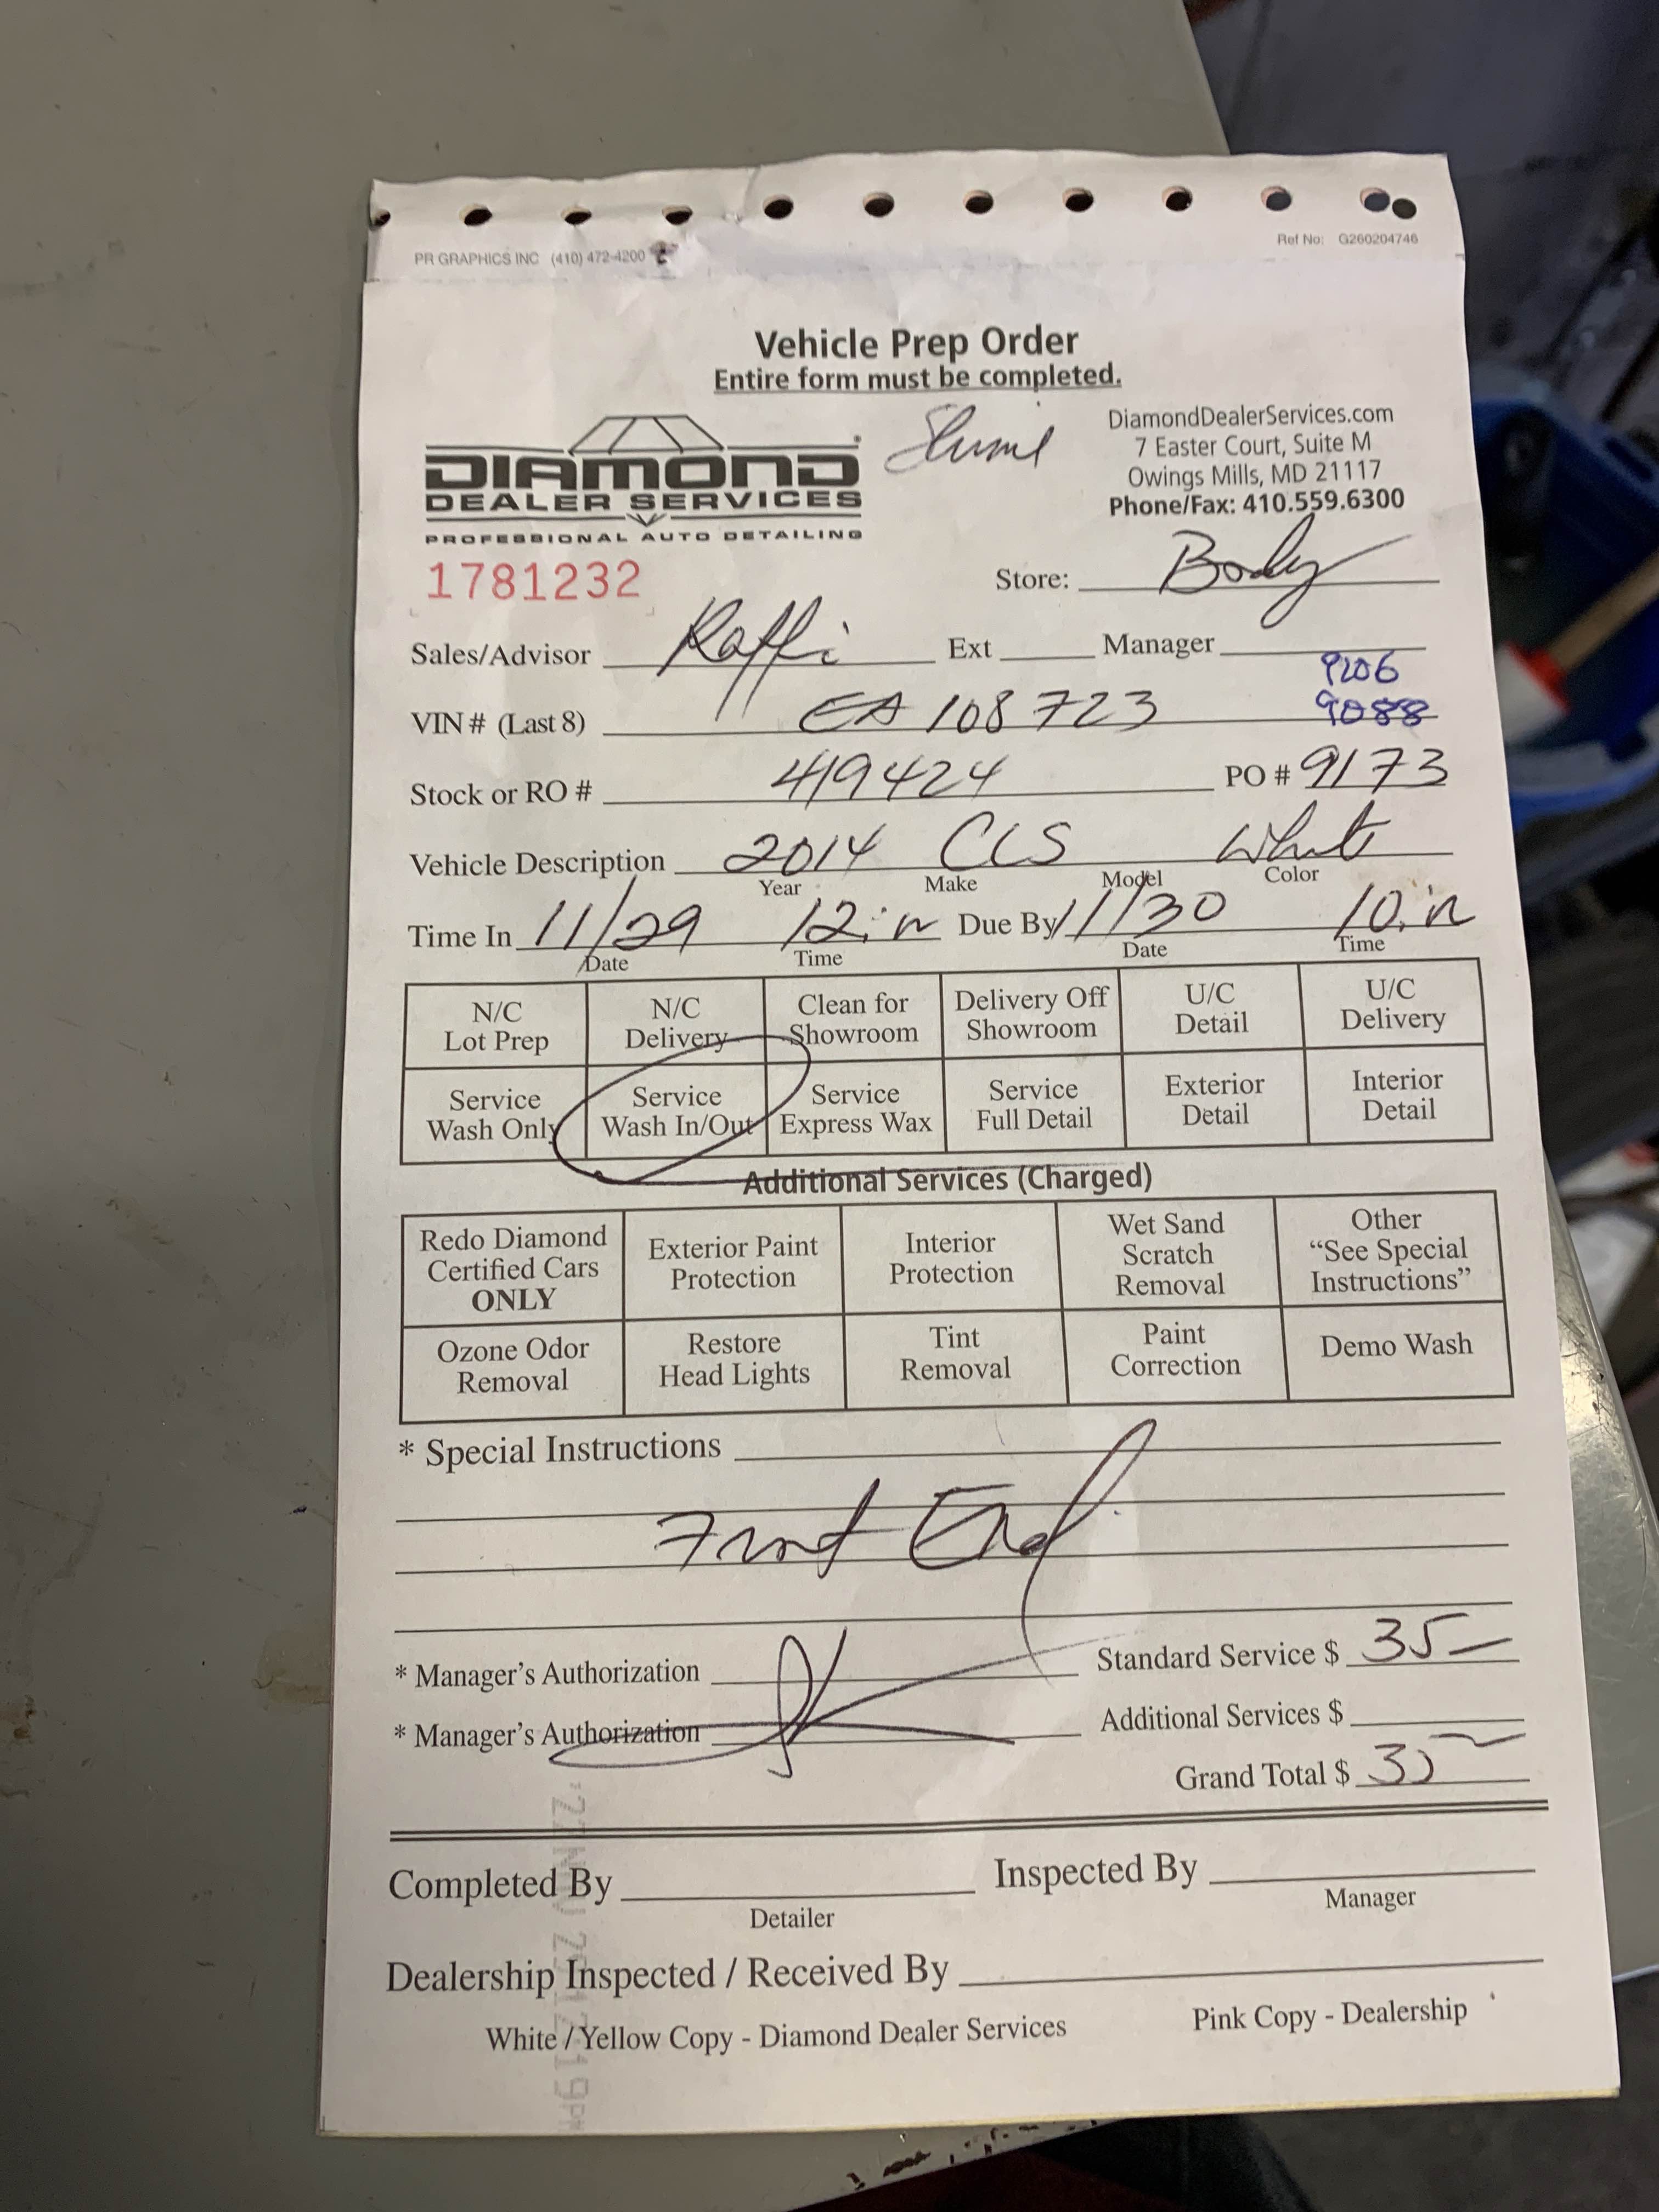 PR GRAPHICS INC (410) 472-4200
Ref No: G260204746
Vehicle Prep Order
Entire form must be completed.
DIAMOND
DEALER SERVICES
PROFESSIONAL AUTO DETAILING
DiamondDealerServices.com
7 Easter Court, Suite M
Owings Mills, MD 21117
Phone/Fax: 410.559.6300
1781232
Store: Body
Sales/Advisor Raffi Ext Manager
9206
VIN # (Last 8) EA 108723 9088
Stock or RO # 419424 PO # 9173
Vehicle Description 2014 CLS White
Year Make Model Color
Time In 11/29 12: Due By 11/30 10:
Date Time Date Time
N/C Lot Prep
N/C Delivery
Clean for Showroom
Delivery Off Showroom
U/C Detail
U/C Delivery
Service Wash Only
Service Wash In/Out
Service Express Wax
Service Full Detail
Exterior Detail
Interior Detail
Additional Services (Charged)
Redo Diamond Certified Cars ONLY
Exterior Paint Protection
Interior Protection
Wet Sand Scratch Removal
Other "See Special Instructions"
Ozone Odor Removal
Restore Head Lights
Tint Removal
Paint Correction
Demo Wash
* Special Instructions
Front End
* Manager's Authorization
Standard Service $ 35 —
* Manager's Authorization
Additional Services $
Grand Total $ 35 —
Completed By Inspected By
Detailer Manager
Dealership Inspected / Received By
White / Yellow Copy - Diamond Dealer Services Pink Copy - Dealership